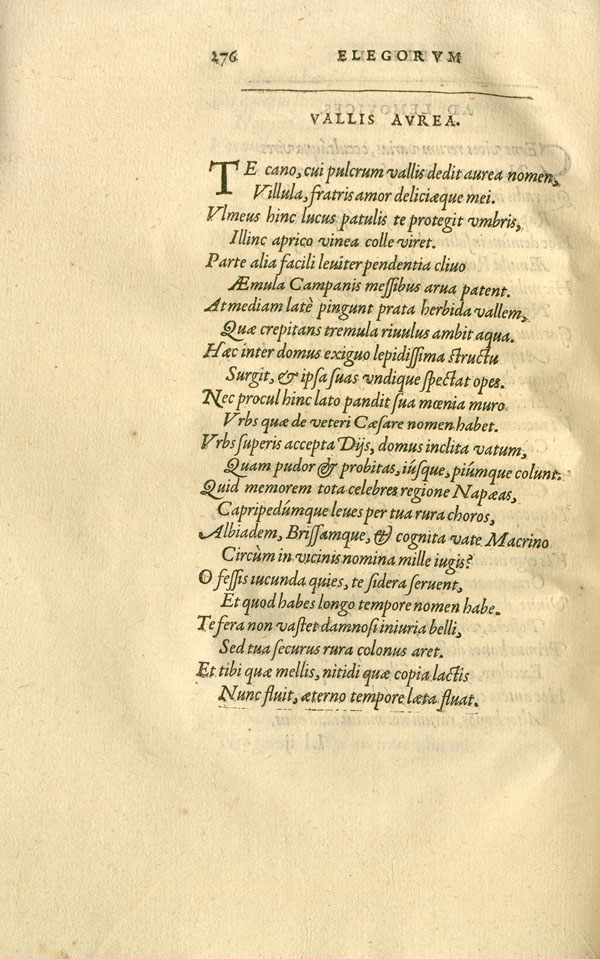 276 ELEGORVM
VALLIS AVREA.
TE cano, cui pulcrum vallis dedit aurea nomen,
Villula, fratris amor deliciæque mei.
Vlmeus hinc lucus patulis te protegit vmbris,
Illinc aprico vinea colle viret.
Parte alia facili leuiter pendentia cliuo
Æmula Campanis messibus arua patent.
At mediam latè pingunt prata herbida vallem,
Quæ crepitans tremula riuulus ambit aqua.
Hæc inter domus exiguo lepidissima structu
Surgit, & ipsa suas vndique spectat opes.
Nec procul hinc lato pandit sua mœnia muro
Vrbs quæ de veteri Cæsare nomen habet.
Vrbs superis accepta Dijs, domus inclita vatum,
Quam pudor & probitas, iúsque, piúmque colunt.
Quid memorem tota celebres regione Napæas,
Capripedúmque leues per tua rura choros,
Albiadem, Brissamque, & cognita vate Macrino
Circùm in vicinis nomina mille iugis?
O fessis iucunda quies, te sidera seruent,
Et quod habes longo tempore nomen habe.
Te fera non vastet damnosi iniuria belli,
Sed tua securus rura colonus aret.
Et tibi quæ mellis, nitidi quæ copia lactis
Nunc fluit, æterno tempore læta fluat.